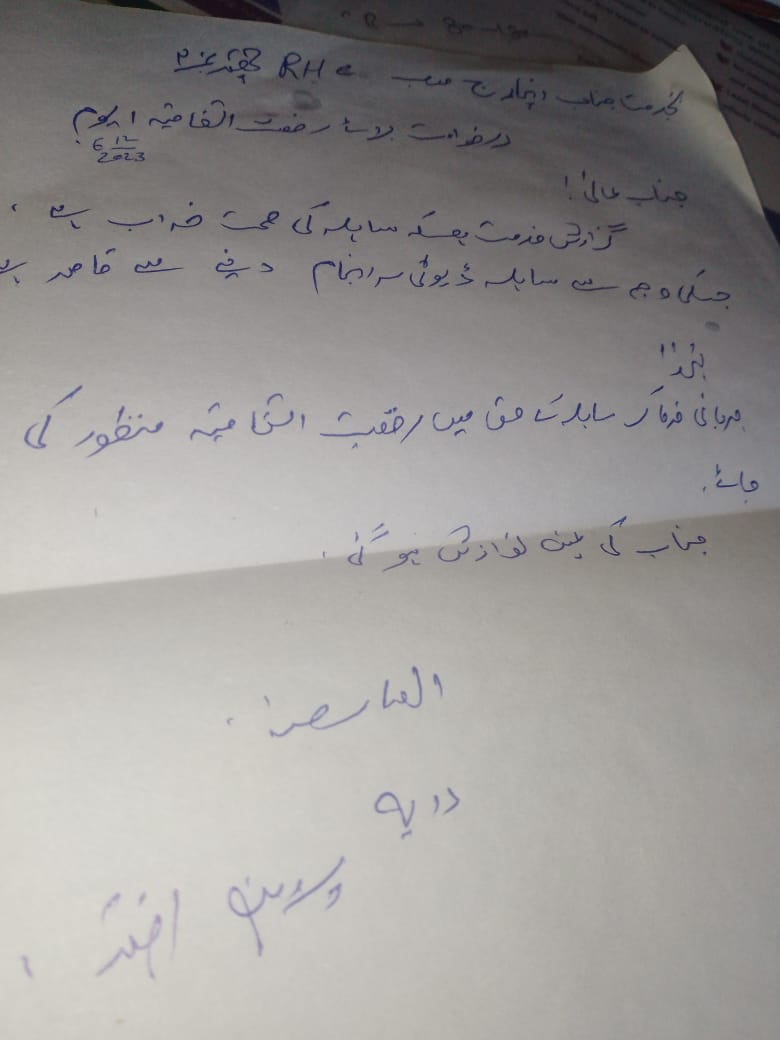 بخدمت جناب انچارج صاحب RHC
درخواست برائے رخصت اتفاقیہ 1 یوم
6 12
2023
جناب عالی!
گزارش خدمت ہیکہ سائلہ کی صحت خراب ہے ،
جسکی وجہ سے سائلہ ڈیوٹی سرانجام دینے سے قاصر ہے
لہذا"
مہربانی فرما کر سائلہ کے حق میں رخصت اتفاقیہ منظور کی
جائے.
جناب کی عین نوازش ہو گئی.
العارضہ.
دایہ
پروین اختر